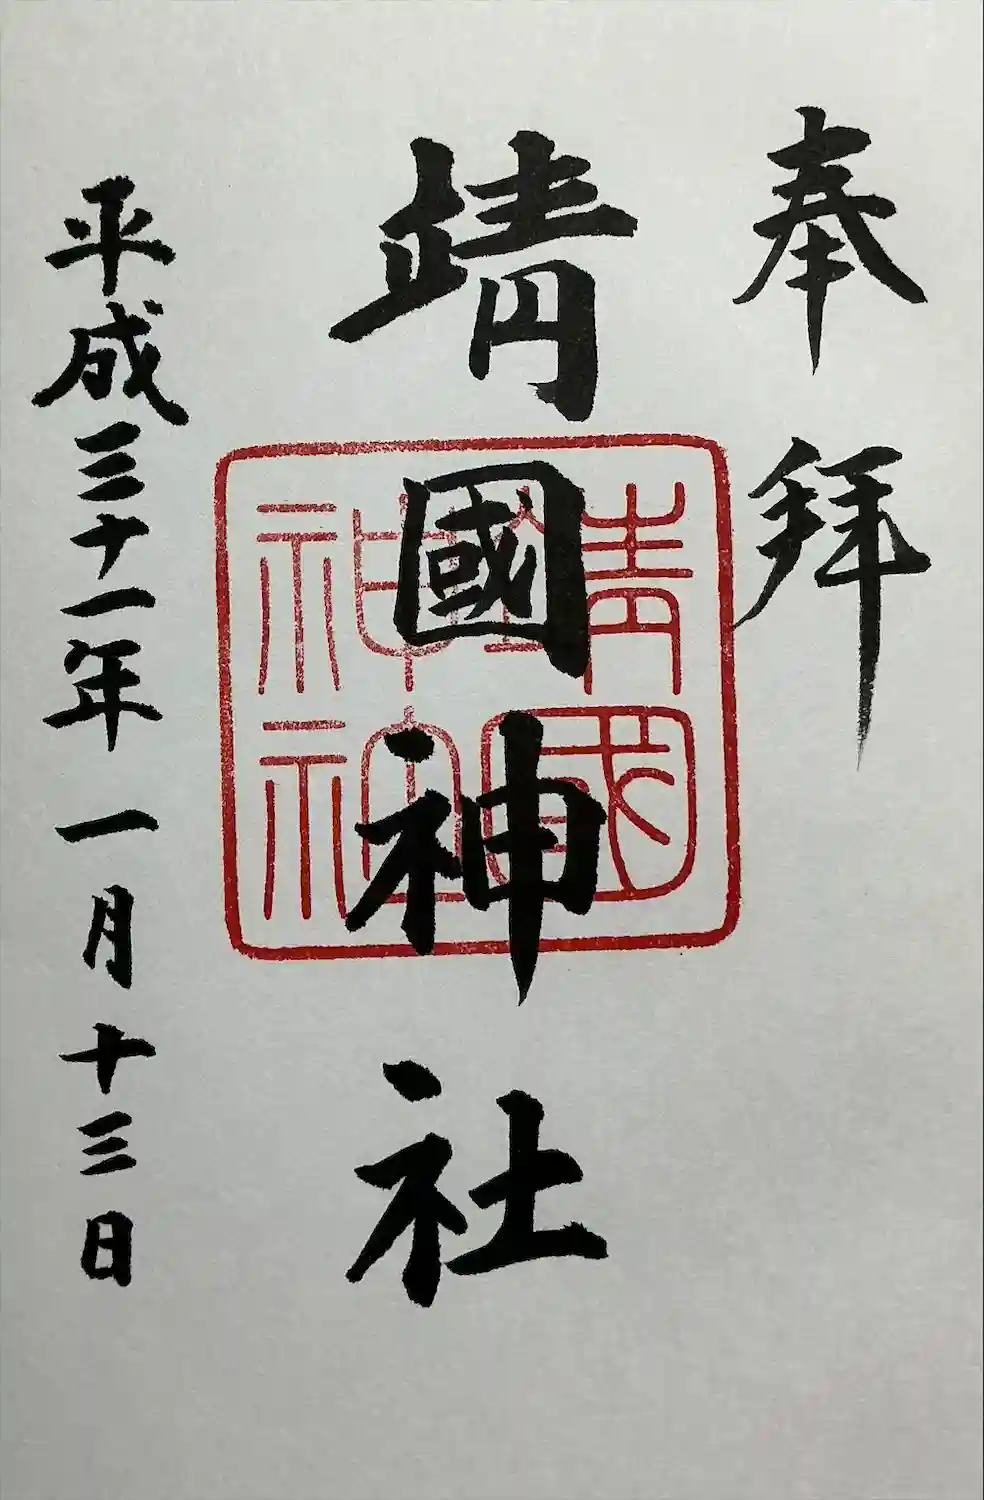 奉拝
靖國神社
靖國
神社
平成三十一年一月十三日